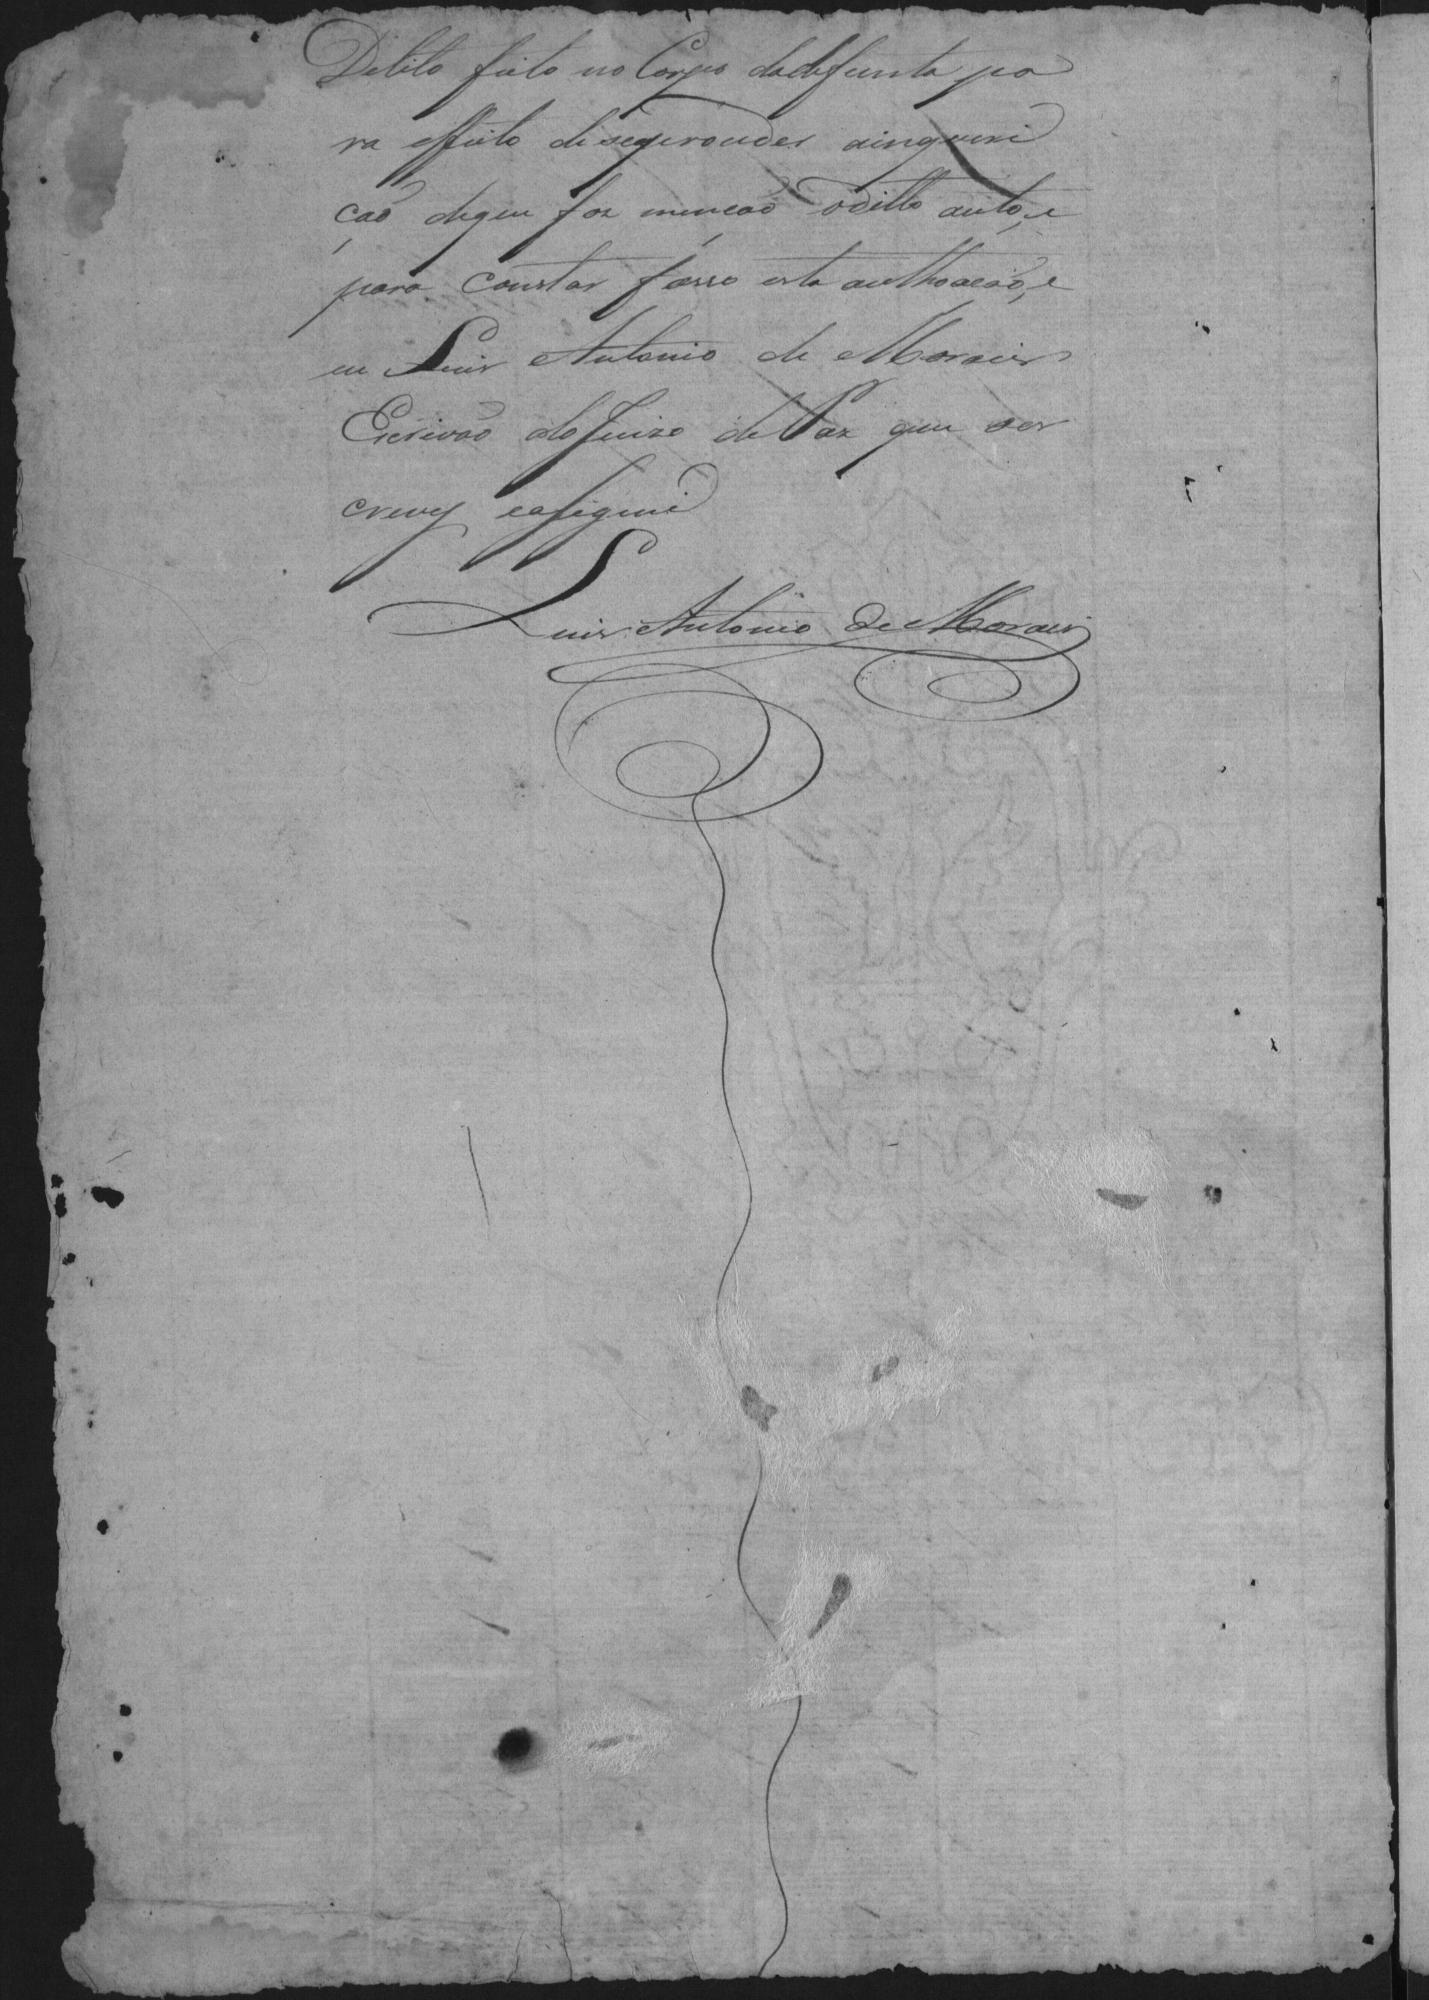 Delito feito no Corpo da defunta pa
ra effeito de seproceder ainquiri
cão dequi faz mencaõ odito auto, e
para constar fasso esta authoacaõ, e
eu Luis Antonio de Morais
Escrivaõ do Juizo de Paz que ses
crevy easignei
Luis Antonio de Morais